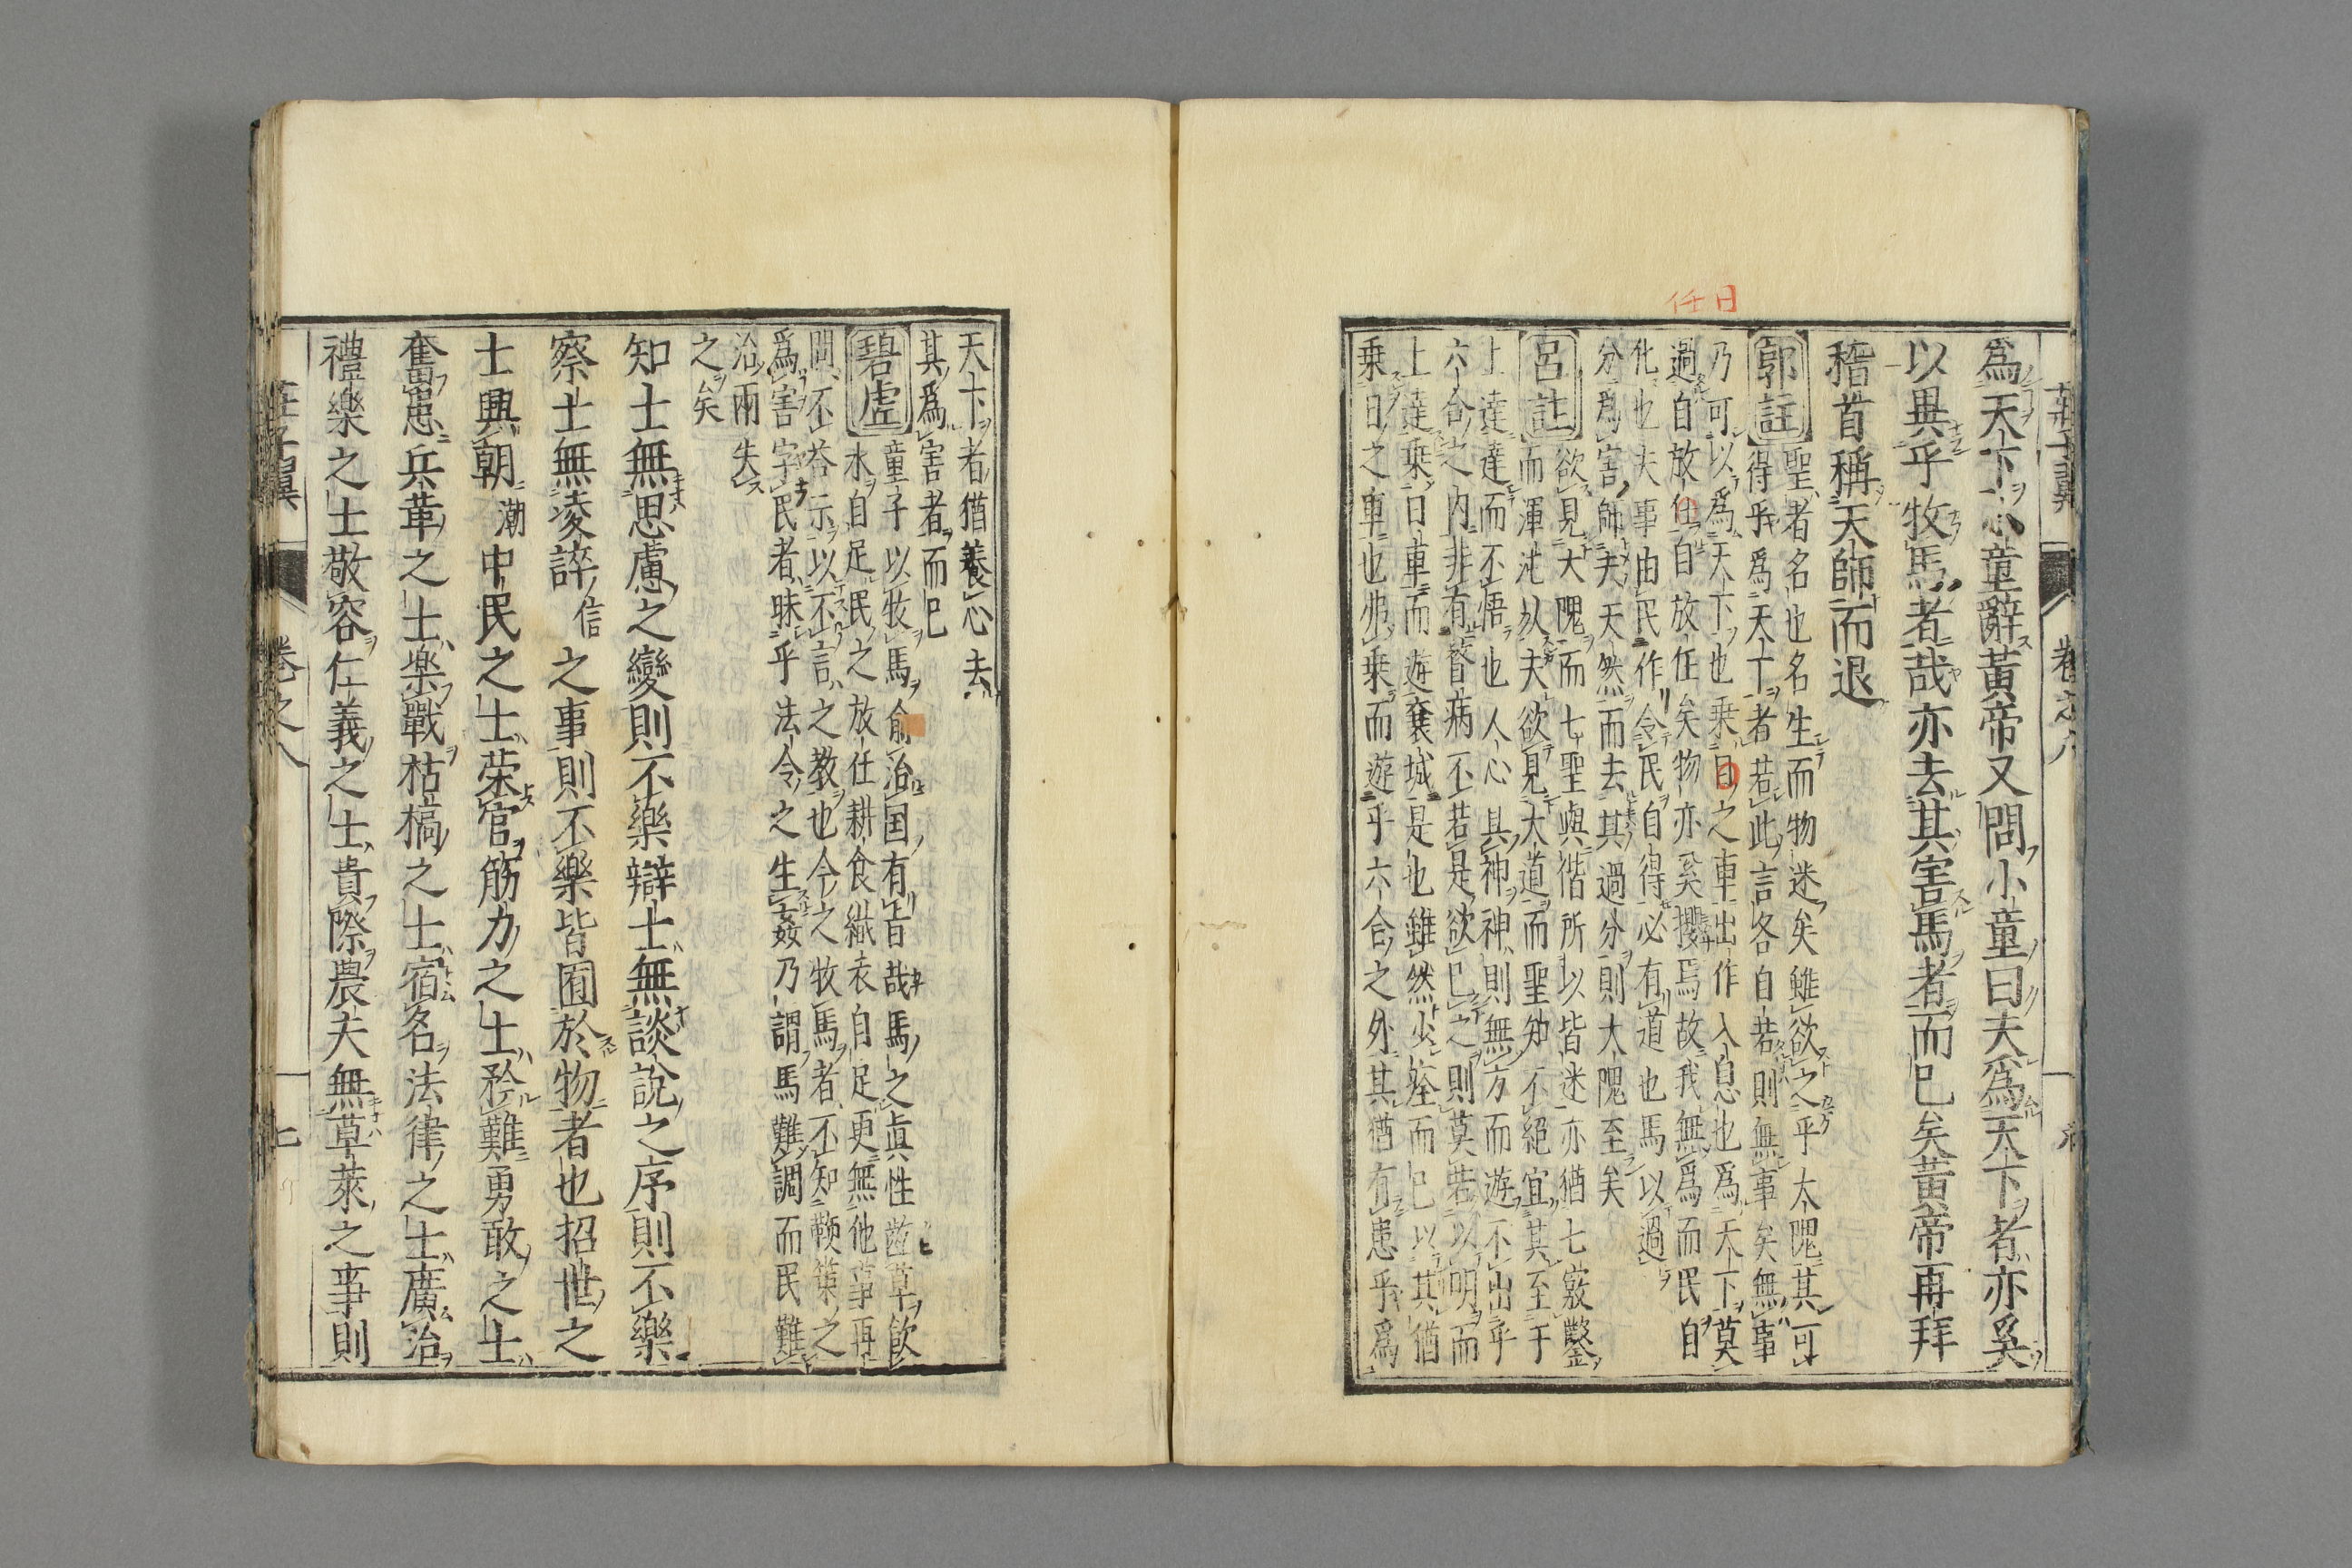 任日
莊子翼 卷之八
為天下小童辭黃帝又問小童曰夫為天下者亦奚
以異乎牧馬者哉亦去其害馬者而已矣黃帝再拜
稽首稱天師而退
郭註
聖者名也名生而物迷矣雖欲之乎大隗其可
得乎為天下者若此言各自若則無事矣無事
乃可以為天下也乗日之車出作入息也為天下莫
過自放任自放任矣物亦奚攖焉故我無為而民自
化也夫事由民作令民自得必有道也馬以過
分為害師夫天然而去其過分則大隗至矣
呂註
欲見大隗而七聖與偕所以皆迷亦猶七竅鑿
而渾沌死夫欲見大道而聖知不絕宜其至于
上達達而不悟也人心其神神則無方而遊不出乎
六合之内非有瞀病不若是欲已之則莫若以明而
上達乗日車而遊襄城是也雖然少痊而已以其猶
乗日之車也弗乗而遊乎六合之外其猶有患乎爲
天下者猶養心去
其爲害者而已
碧虛
童子以牧馬俞治国有旨哉馬之真性齕草飲
水自足民之放仕耕食織衣自足更無他事再
問不荅示以不言之教也今之牧馬者不知鞭策之
爲害字民者昧乎法令之生姦乃謂馬難調而民難
治兩失
之矣
知士無思慮之變則不樂辯士無談說之序則不樂
察士無凌誶信之事則不樂皆囿於物者也招世之
士興朝潮中民之士荣官筋力之士矜難勇敢之士
奮患兵革之士楽戰枯槁之士宿名法律之士廣治
禮樂之士敬容仁義之士貴際農夫無草萊之事則
莊子翼 卷之八 七